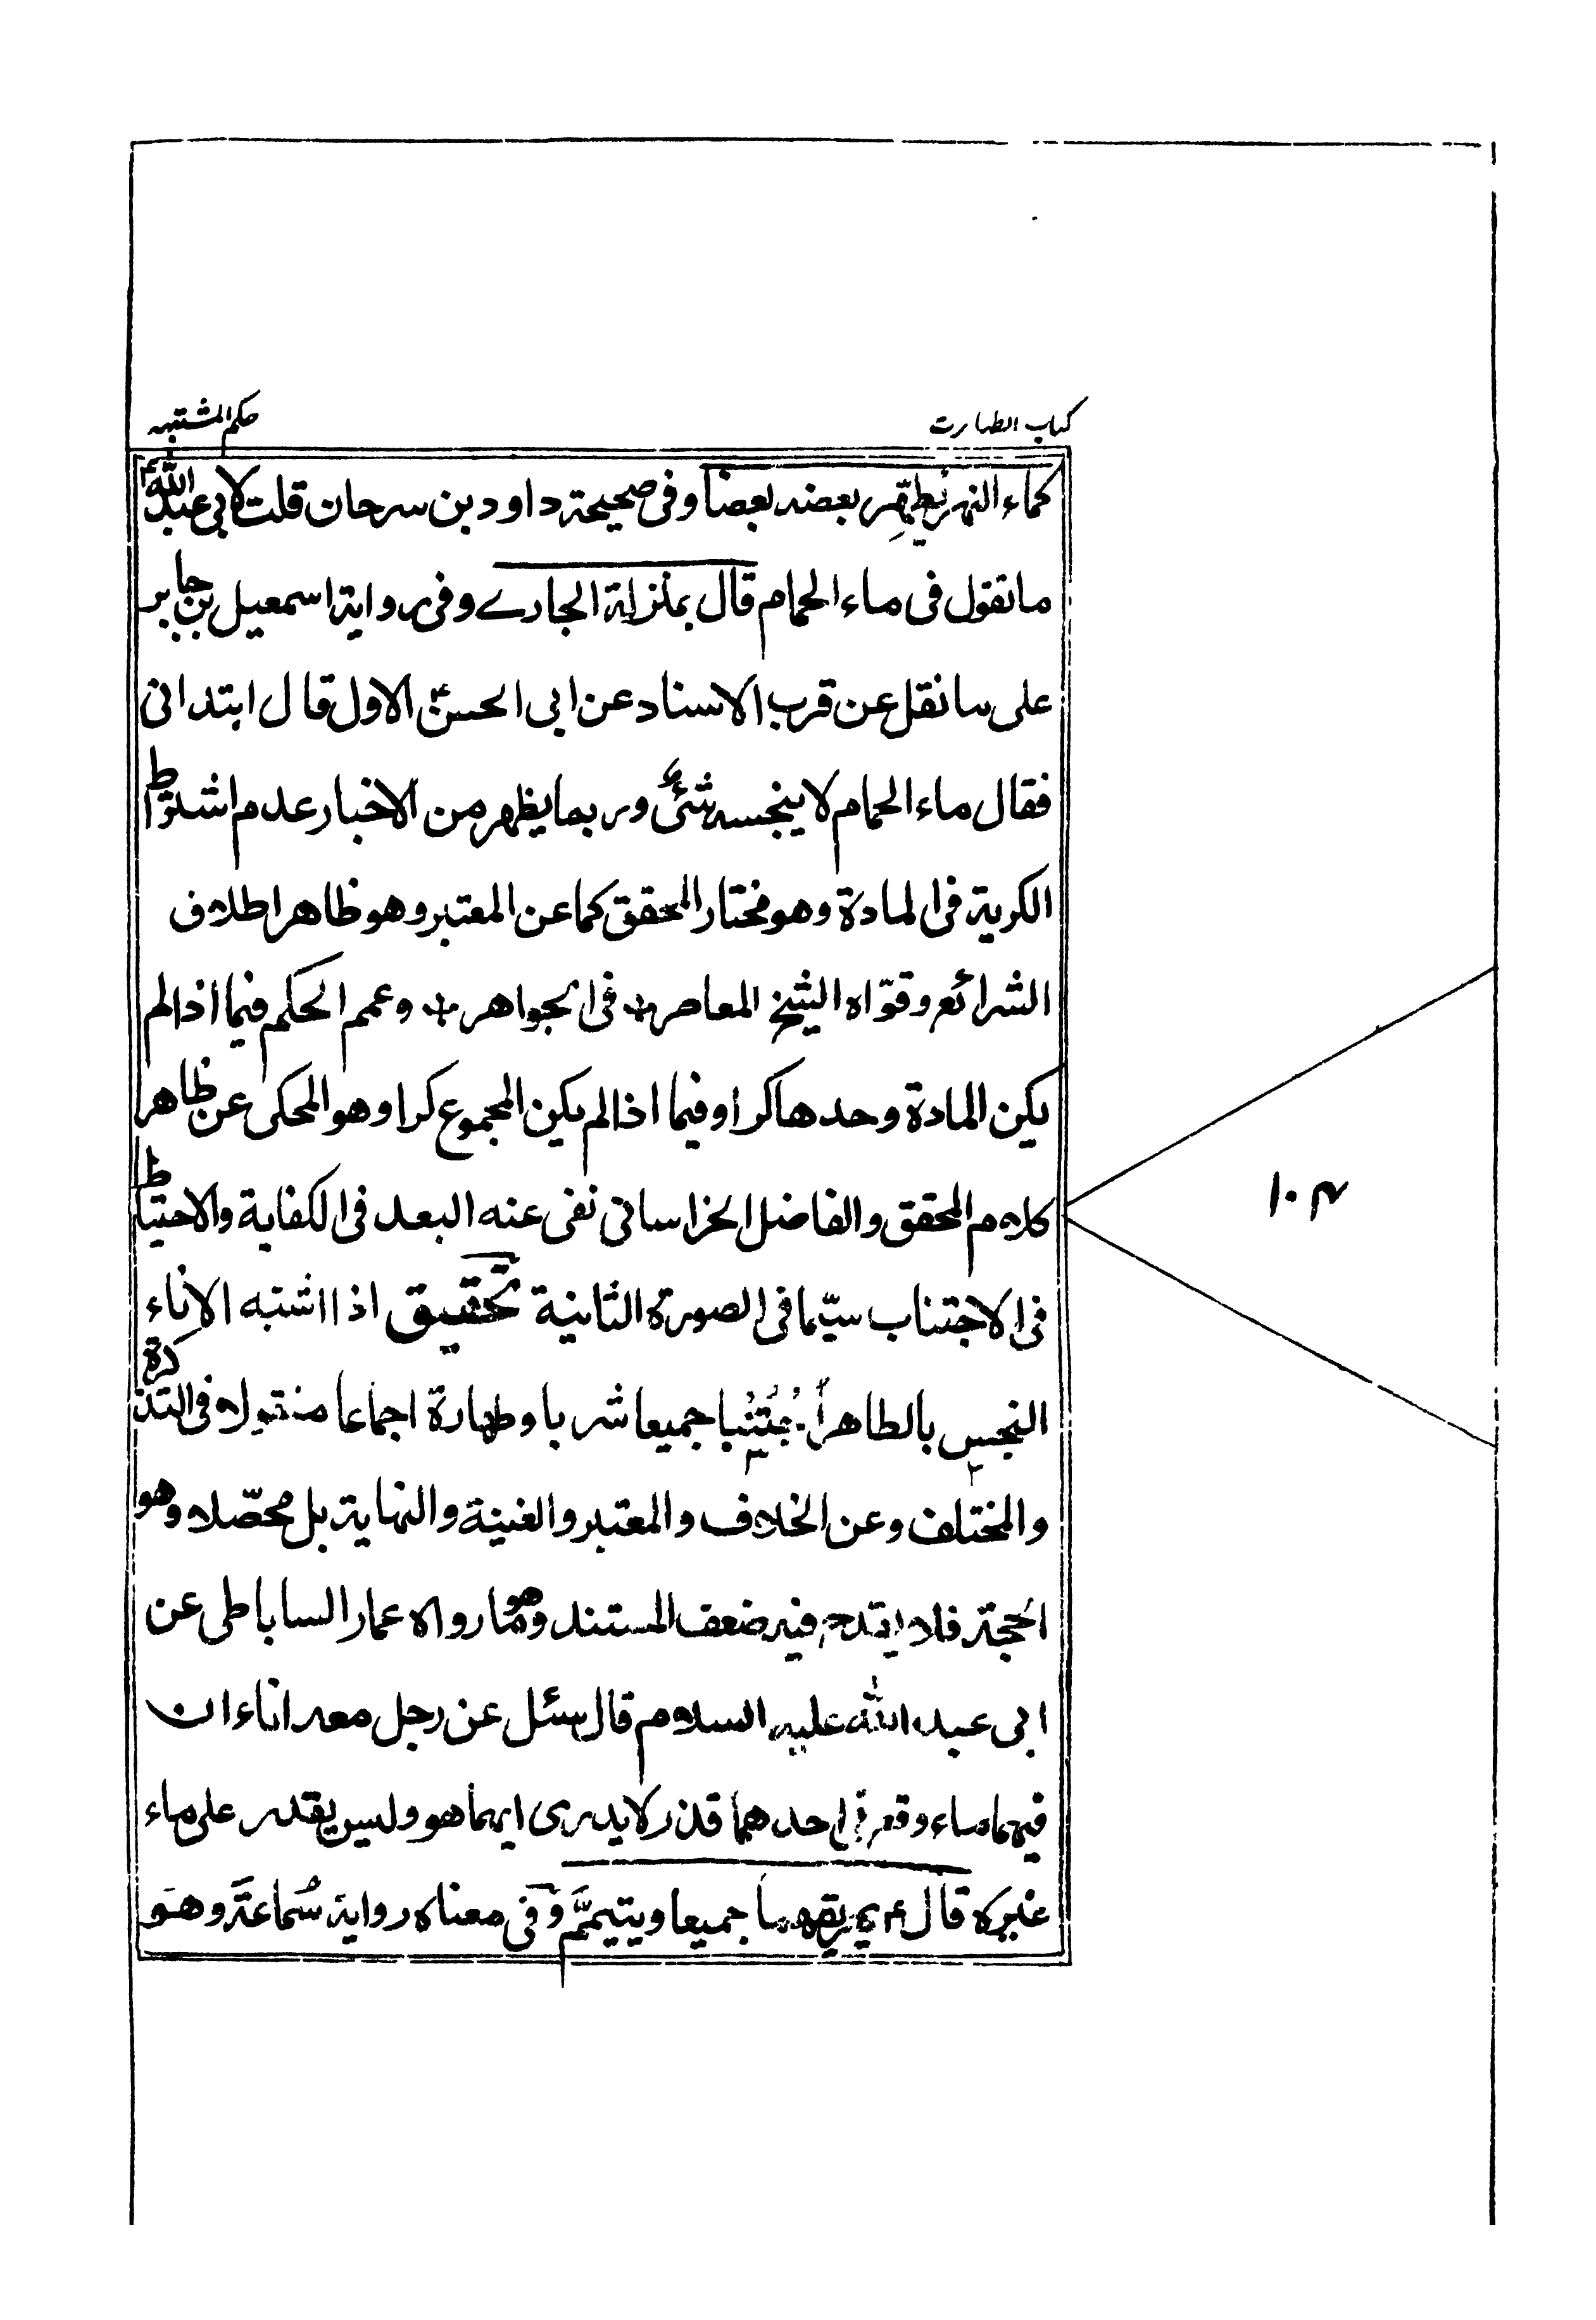 كتاب الطهارت
حكم المشتبه
كماء النهر يطهر بعضه بعضا وفي صحيحة داود بن سرحان قلت لابي عبد الله ع
ما تقول في ماء الحمام قال بمنزلة الجاري وفي رواية اسمعيل بن جابر
على ما نقل عن قرب الاسناد عن ابي الحسن ع الاول قال ابتداني
فقال ماء الحمام لا ينجسه شئ وربما يظهر من الاخبار عدم اشتراط
الكرية في المادة وهو مختار المحقق كما عن المعتبر وهو ظاهر اطلاق
الشرائع وقوّاه الشيخ المعاصر ره في الجواهر ره وعمم الحكم فيما اذا لم
يكن المادة وحدها كرا وفيما اذا لم يكن المجموع كرا وهو المحكي عن ظاهر
كلام المحقق والفاضل الخراساني نفى عنه البعد في الكفاية والاحتياط
في الاجتناب سيّما في الصورة الثانية تحقيق اذا اشتبه الاناء
النجس بالطاهر اُجتُنِبا جميعا شربا وطهارة اجماعا منقولا في التذكرة
والمختلف وعن الخلاف والمعتبر والغنية والنهاية بل محصّلا وهو
الحجة فلا يقدح فيه ضعف المستند وهو ما رواه عمار الساباطي عن
ابي عبد الله عليه السلام قال سئل عن رجل معه اناءان
فيهما ماء وقع في احدهما قذر لا يدرى ايهما هو وليس يقدر على ماء
غيره قال ع يهريقهما جميعا ويتيمّم وفي معناه رواية سُماعَة وهو
١٠۴